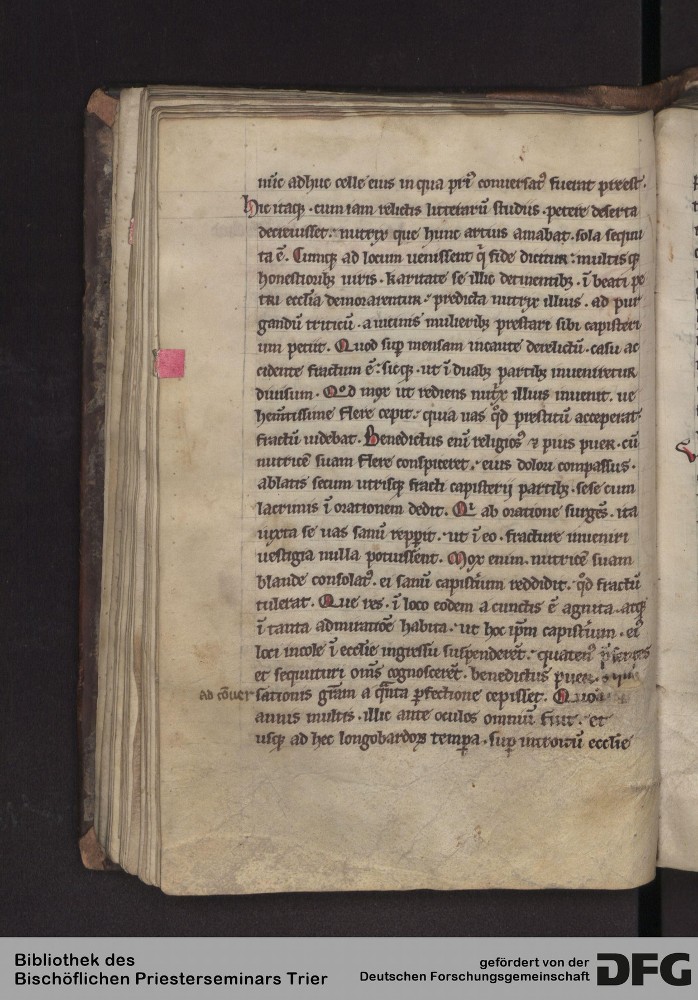 nūc adhuc celle eius in qua pri᷒ conuersat᷒ fuerat preest.
Hic itaq; cum iam relictis litterarū studiis. petere deserta
decreuisset. nutrix que hunc artius amabat. sola sequu
ta ē. Cumq; ad locum uenissent q̄ side dicitur: multisq;
honestiorib; uiris. karitate se illic detinentib; ī beati pe
tri eccl̄ia demorarentur. predicta nutrix illius. ad pur
gandū triticū. a uicinis mulierib; prestari sibi capisteri
um petiit. Quod sup mensam incaute derelictū. casu ac
cidente fractum ē: sicq; ut ī duab; partib; inueniretur
diuisum. Qod mox ut rediens nutx illius inuenit. ue
hem̄tissime flere cepit: quia uas qd prestitū acceperat
fractū uidebat. Benedictus enī religios᷒ ⁊ pius puer. cū
nutricē suam flere conspiceret. eius dolori compassus.
ablatis secum utrisq; fracti capisterii partib; sese cum
lacrimis ī orationem dedit. Qi ab oratione surgēs. ita
iuxta se uas sanū repperit. ut ī eo. fracture inueniri
uestigia nulla potuissent. Mox enim. nutricē suam
blande consolat᷒. ei sanū capistiūm reddidit. qd fractū
tulerat. Que res. ī loco eodem a cunctis ē agnita. atq;
ī tanta admiratiōe habita. ut hoc ip̄m capistiūm. ei᷒
loci incole ī ecclīe ingressu suspenderēt. quaten᷒
et sequituri oms cognoscerēt. benedictus puer.
ad cōuer sationis grām a qnta pfectione cepisset. Quod
annis multis. illic ante oculos omniū fuit. et
usq; ad hec longobardoꝝ tempa. sup introitū ecclīe
Bibliothek des
Bischöflichen Priesterseminars Trier
gefördert von der
Deutschen Forschungsgemeinschaft
DFG